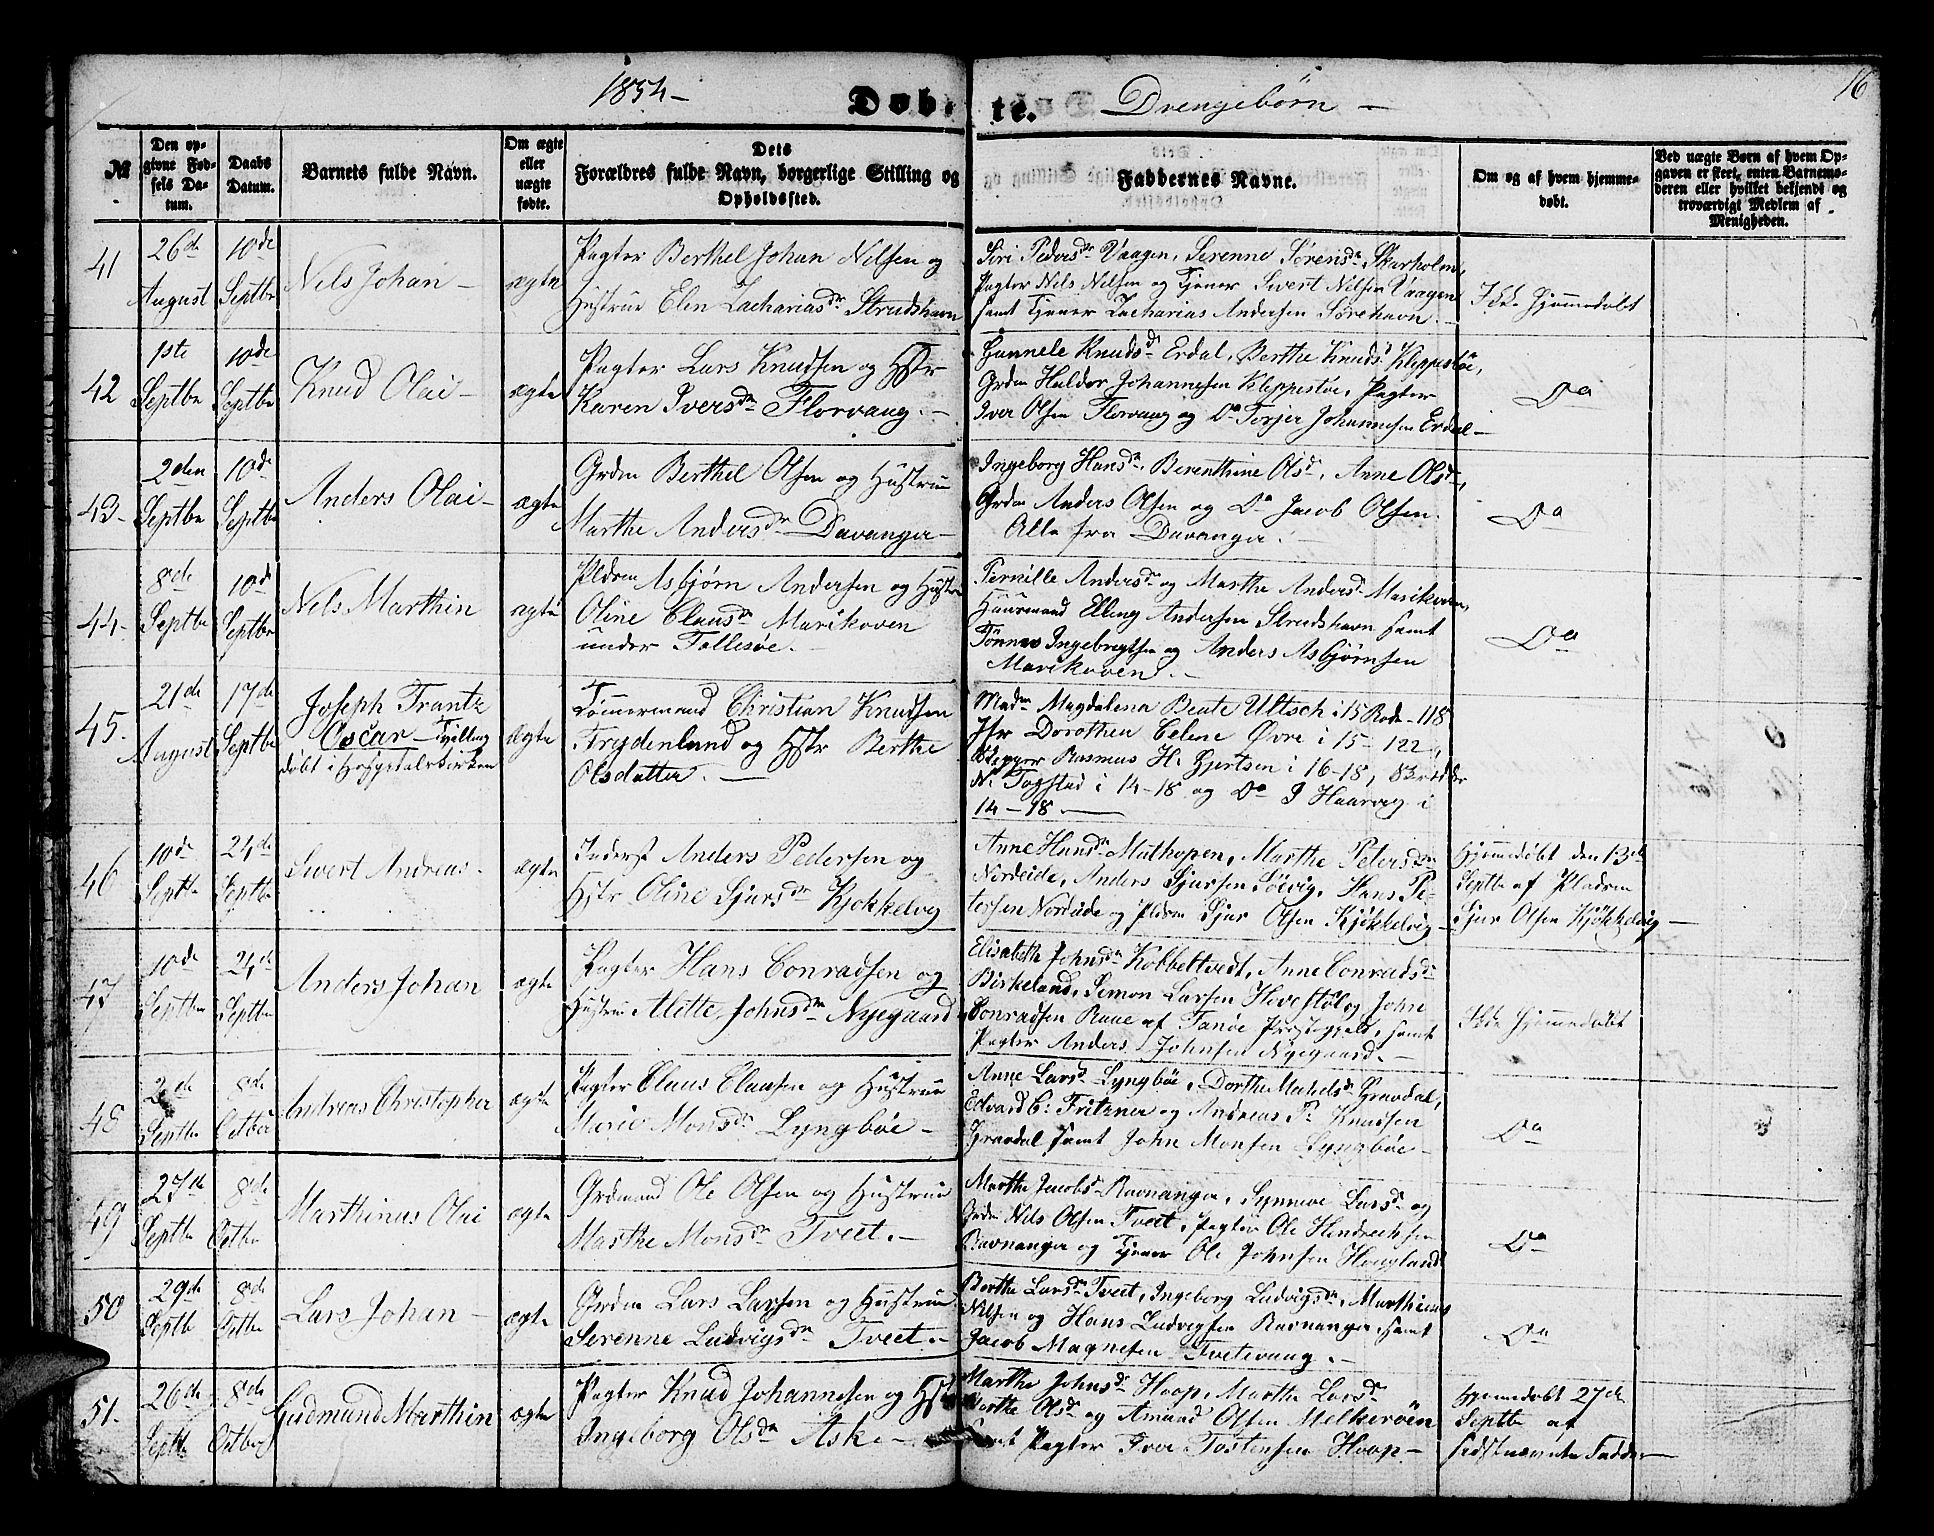 1854 –
Døbte.
Drengebørn –
16
№
Den opgivne Fødsels Datum.
Daabs Datum.
Barnets fulde Navn.
Om ægte eller uægte fødte.
Dets Forældres fulde Navn, borgerlige Stilling og Opholdssted.
Faddernes Navne.
Om og af hvem hjemmedøbt.
Ved uægte Børn af hvem Opgaven er skeet, enten Barnemoderen eller hvilket bekjendt og troværdigt Medlem af Menigheden.
41
26de August
10de Septbr
Nels Johan –
ægte
Pagter Berthel Johan Nilsen og
Hustrue Elen Zachariasdr Strudshavn
Siri Pedersdr Vaagen, Serenne Sørensdr Skarholm,
Pagter Nels Nelsen og Tjener Sivert Nilsen Vaagen
samt Tjener Zacharias Andersen Sørehavn. –
Ikke hjemmedøbt
42
1ste Septbr
10de Septbr
Knud Olai –
ægte
Pagter Lars Knudsen og Hstr
Karen Iversdr Florvaag. –
Gunnele Knudsdr Erdal, Berthe Knudsd Kleppestøe,
Grdm Haldor Johannesen Kleppestøe, Pagter
Iver Olsen Florvaag og Do Torjer Johannesen Erdal –
Do
43 –
2den Septbr
10de Septbr
Anders Olai –
ægte
Grdm Berthel Olsen og Hustrue
Marthe Andersdr Davanger –
Ingeborg Hansdr, Berenthine Olsd, Anne Olsd,
Grdm Anders Olsen og Do Jacob Olsen.
Alle fra Davanger. –
Do
44 –
8de Septbr
10de Septbr
Nels Marthin
ægte
Pldsm Asbjørn Andersen og Hustr
Oline Clausdr Marikoven
under Follesøe. –
Pernille Andersdr og Marthe Andersd Marikoven,
Huusmand Elling Andersen Strudshavn samt
Tønnes Ingebregtsen og Anders Asbjørnsen
Marikoven. –
Do
45 –
21de August
17de Septbr
Joseph Frantz
Oscar – Tvilling
døbt i Hospitalskirken
ægte
Tømmermand Christian Knudsen
Frydenlund og Hstr Berthe
Olsdatter. –
Madm Magdalena Beate Ultsch i 15 Rode – 118
Jfr Dorothea Celene Øvre i 15 – 122,
Rasmus H. Gjertsen i 16 – 18,
N. Fogstad i 14 – 18 og Do P Haarvig i
14 – 18 –
46
10de Septbr
24de Septbr
Sivert Andreas –
ægte
Inderst Anders Pedersen og
Hstr Oline Sjursdr Kjøkkelvig
Anne Hansdr Mathopen, Marthe Petersdr
Nordeide, Anders Sjursen Søevig, Hans Pe-
tersen Nordeide og Pldsm Sjur Olsen Kjøkkelvig –
Hjemmedøbt den 13de
Septbr af Pladsm
Sjur Olsen Kjøkkelvig –
47
10de Septbr
24de Septbr
Anders Johan
ægte
Pagter Hans Conradsen og
Hustrue Alette Johnsdr Nygaard
Elisabeth Johnsdr Kobbeltvedt, Anne Conradsd
Birkeland, Simon Larsen Hovestøl og John
Conradsen Raae af Fanøe Præstegjeld, samt
Pagter Anders Johnsen Nygaard. –
Ikke hjemmedøbt
48
2de Septbr
8de Octber
Andreas Christopher
ægte
Pagter Claus Clausen og Hustrue
Marie Monsdr Lyngbøe –
Anne Larsd Lyngbøe, Dorthe Gravdal,
Edvard C. Fritzner og Andreas P. Knudsen
Gravdal samt John Monsen Lyngbøe –
Do
49
27de Septbr
8de Octbr
Marthinus Olai
ægte
Grdmand Ole Olsen og Hustrue
Marthe Monsdr Tveit. –
Marthe Jacobsd Ravnanger, Synneve Larsd og
Grdm Nils Olsen Tveit, Pagter Ole Hendrechsen
Ravnanger og Tjener Ole Johnsen Hougland
Do
50
29de Septbr
8de Octbr
Lars Johan –
ægte
Grdm Lars Larsen og Hustrue
Serenne Ludvigsdr Tveet. –
Berthe Larsdr Tveit, Ingeborg Ludvigsdr, Marthinus
Nilsen og Hans Ludvigsen Ravnanger samt
Jacob Magnesen Tvetevaag. –
Do
51 –
26de Septbr
8de Octber
Gudmund Marthin
ægte
Pagter Knud Johannesen og Hstr
Ingeborg Olsdr Ask –
Marthe Johnsdr Hoop, Marthe Larsdr
Berthe Olsdr og Amund Olsen Melkerøen
samt Pagter Iver Tostensen Hoop –
Hjemmedøbt 27de
Septbr af
sidstnævnte Fadder –